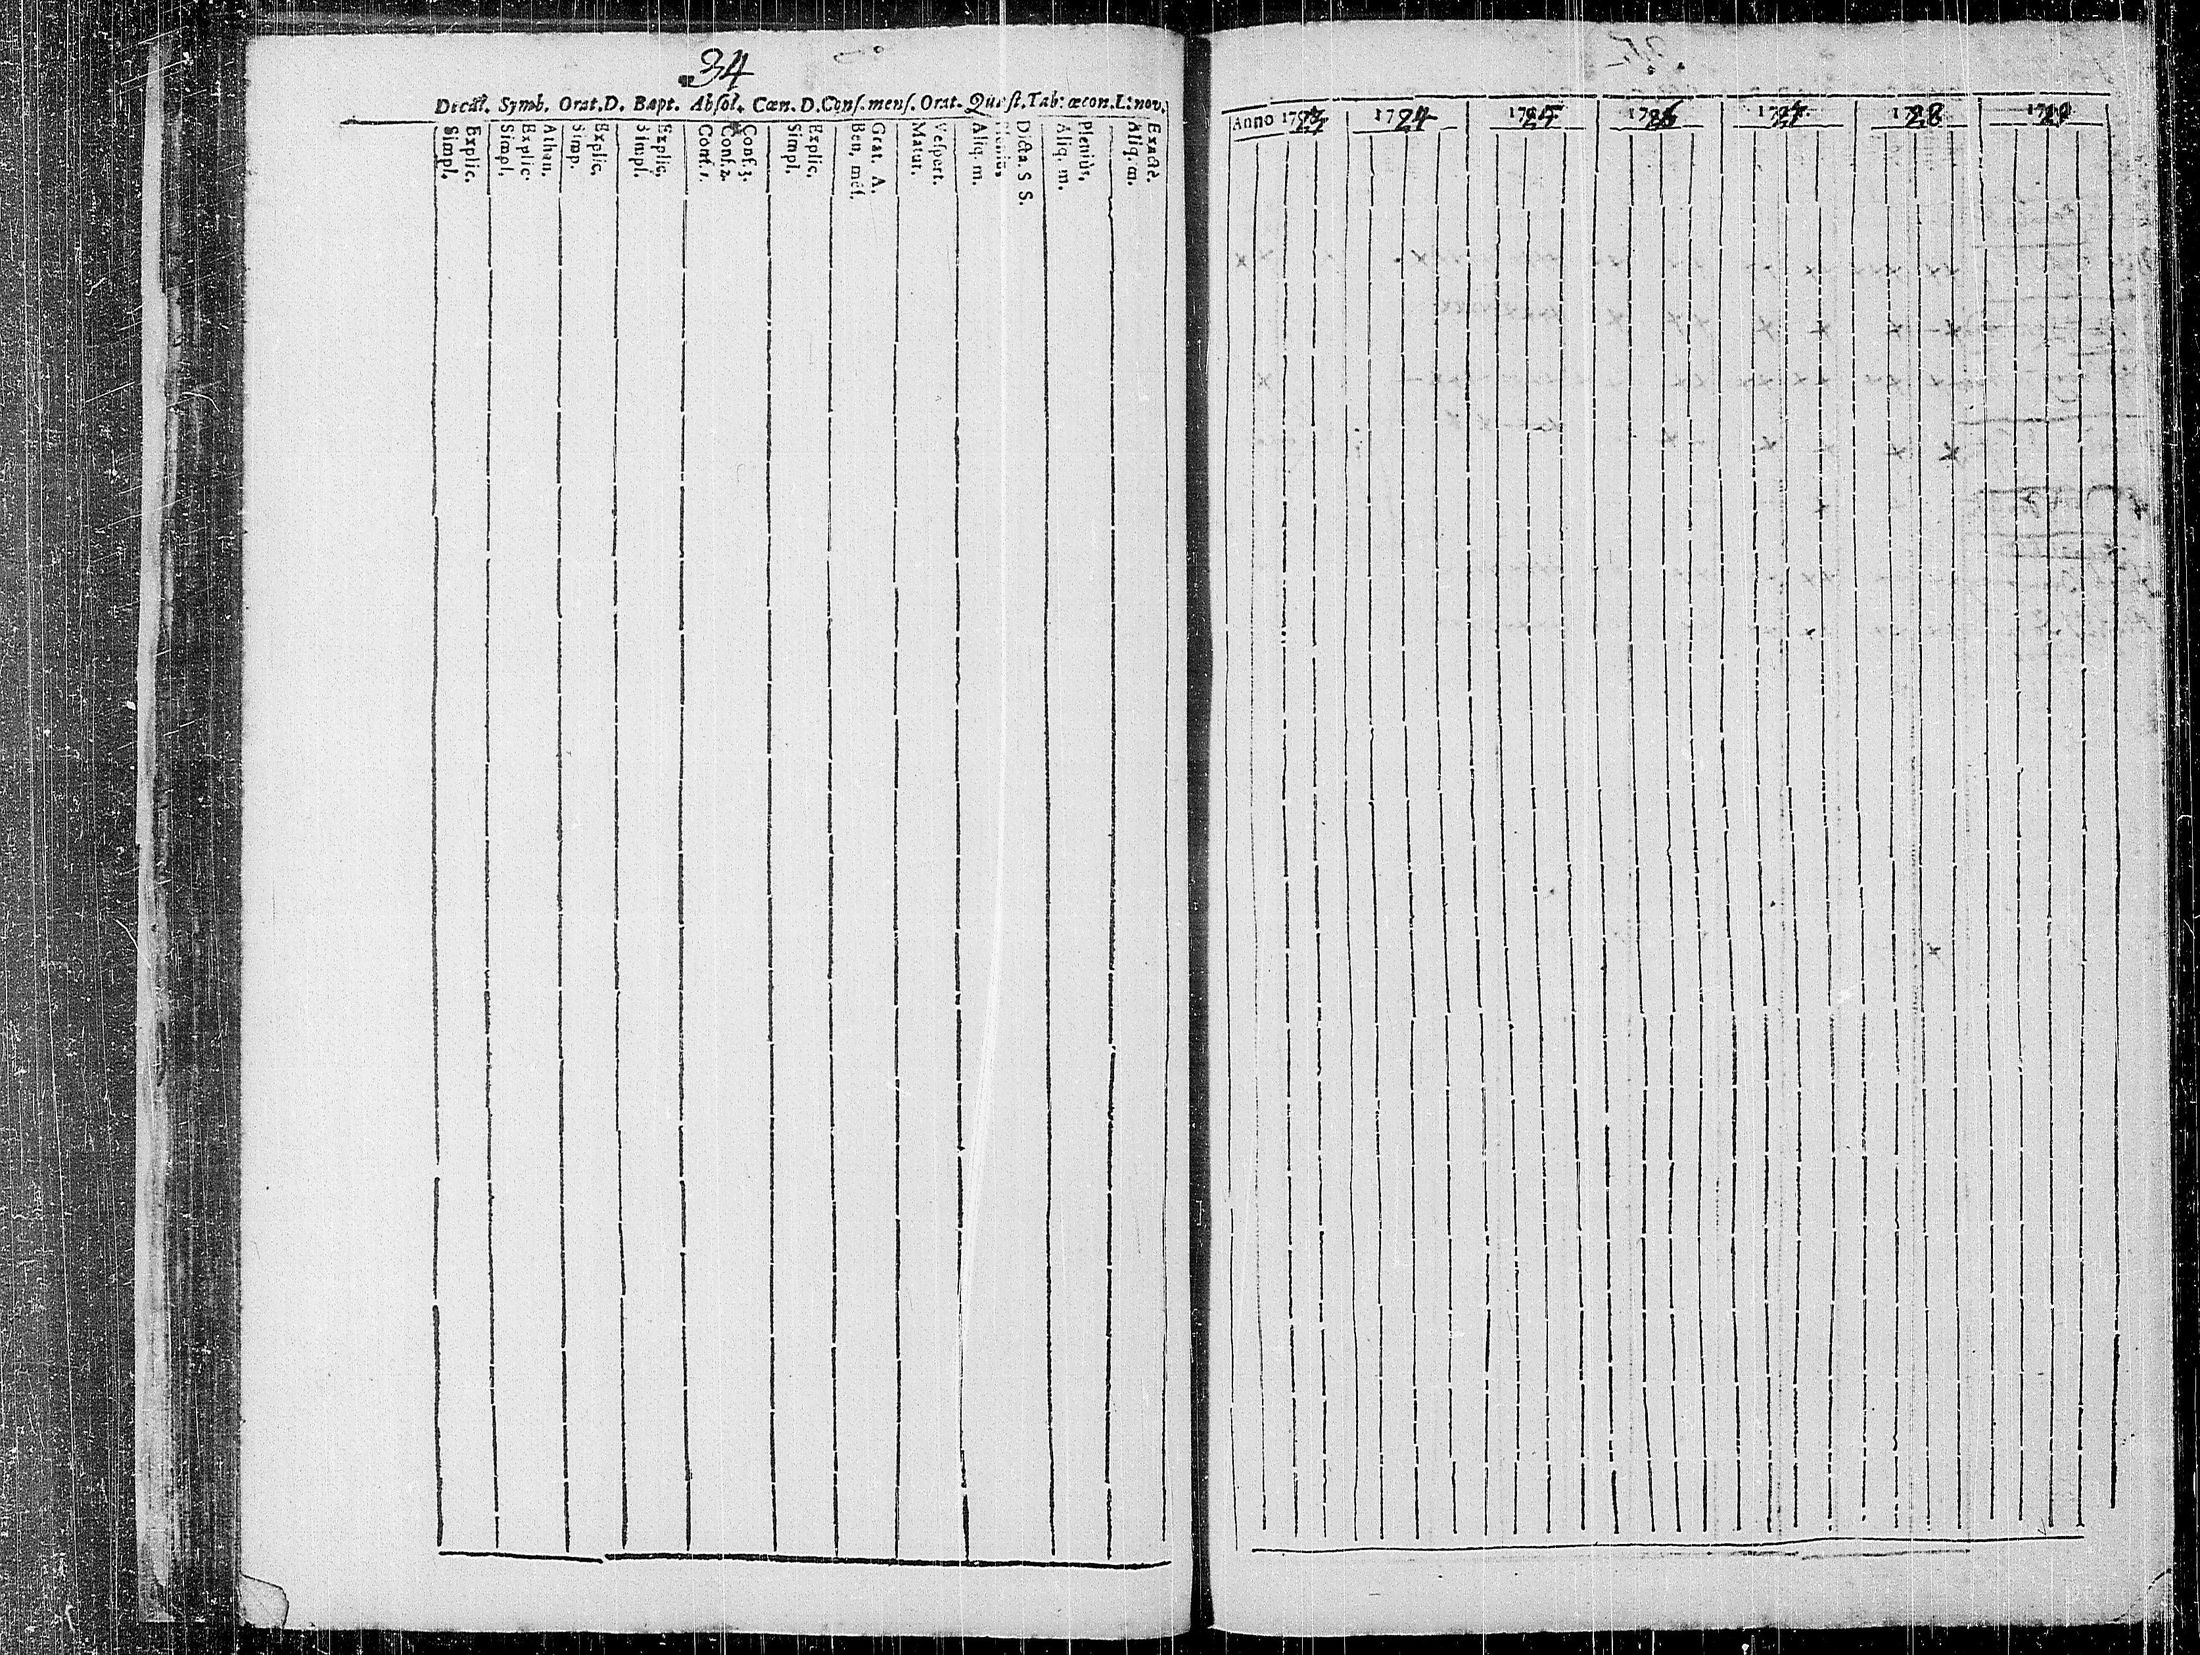 34
Decal. Symb. Orat. D. Bapt. Absol. Cœn. D. Conf. mens. Orat. Quæst. Tab: œcon. L: nov.
Explic.
Simpl.
Athan.
Explic.
Simpl.
Explic.
Simp.
Explic.
Simpl.
Conf. 3.
Conf. 2.
Conf. 1.
Explic.
Simpl.
Grat. A.
Ben. mēs.
Vespert.
Matut.
Dicta. S S.
Aliq. m.
Pleniùs.
Aliq. m.
Exactè.
Aliq. m.
Anno 1723 1724 1725 1726 1727 1728